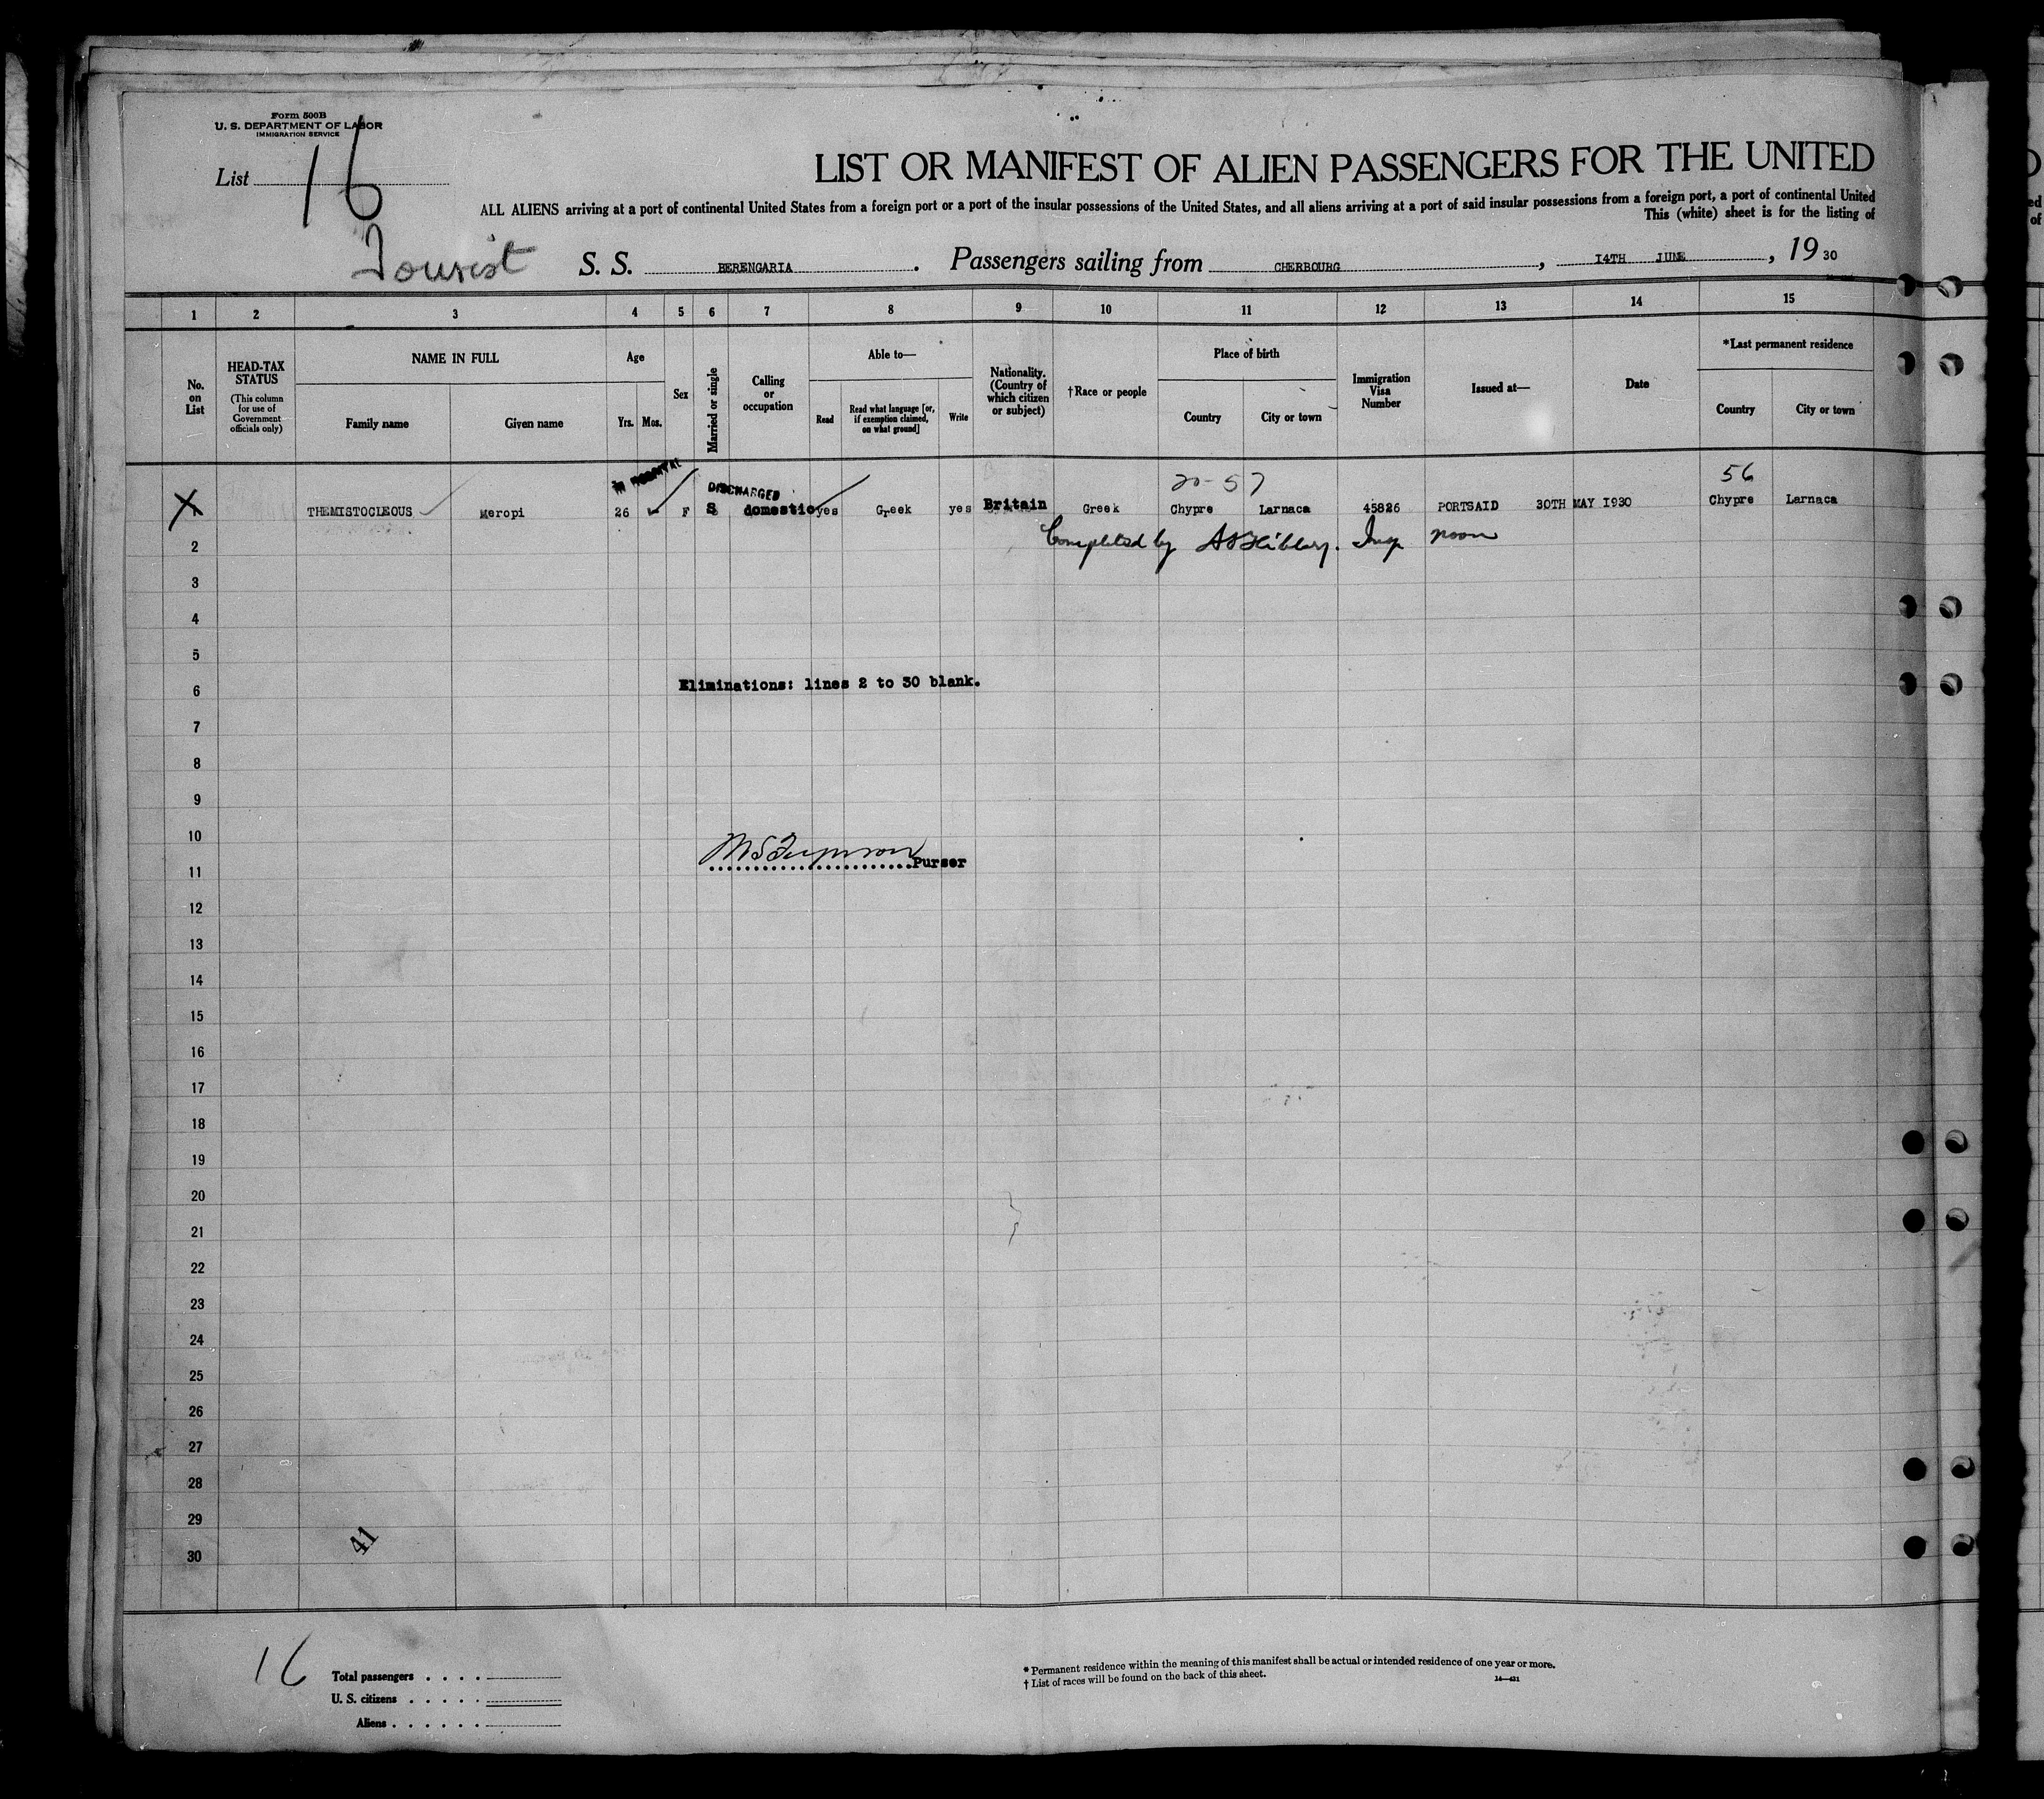 Form 500B
U. S. DEPARTMENT OF LABOR
IMMIGRATION SERVICE
List 16
LIST OR MANIFEST OF ALIEN PASSENGERS FOR THE UNITED
ALL ALIENS arriving at a port of continental United States from a foreign port or a port of the insular possessions of the United States, and all aliens arriving at a port of said insular possessions from a foreign port, a port of continental United
This (white) sheet is for the listing of
Tourist S. S. BERENGARIA . Passengers sailing from CHERBOURG , 14TH JUNE , 19 30
1 2 3 4 5 6 7 8 9 10 11 12 13 14 15
No. on List
HEAD-TAX STATUS (This column for use of Government officials only)
NAME IN FULL
Family name Given name
Age
Yrs. Mos.
Sex
Married or single
Calling or occupation
Able to—
Read Read what language [or, if exemption claimed, on what ground] Write
Nationality. (Country of which citizen or subject)
†Race or people
Place of birth
Country City or town
Immigration Visa Number
Issued at—
Date
*Last permanent residence
Country City or town
IN HOSPITAL DISCHARGED 20-57 56
X THEMISTOCLEOUS Meropi 26 F S domestic yes Greek yes Britain Greek Chypre Larnaca 45826 PORTSAID 30TH MAY 1930 Chypre Larnaca
2 Completed by Insp noon
3
4
5
6 Eliminations: lines 2 to 30 blank.
7
8
9
10
11 Purser
12
13
14
15
16
17
18
19
20
21
22
23
24
25
26
27
28
29
30
41
16
Total passengers . . . .
U. S. citizens . . . . .
Aliens . . . . . .
* Permanent residence within the meaning of this manifest shall be actual or intended residence of one year or more.
† List of races will be found on the back of this sheet.
14—421